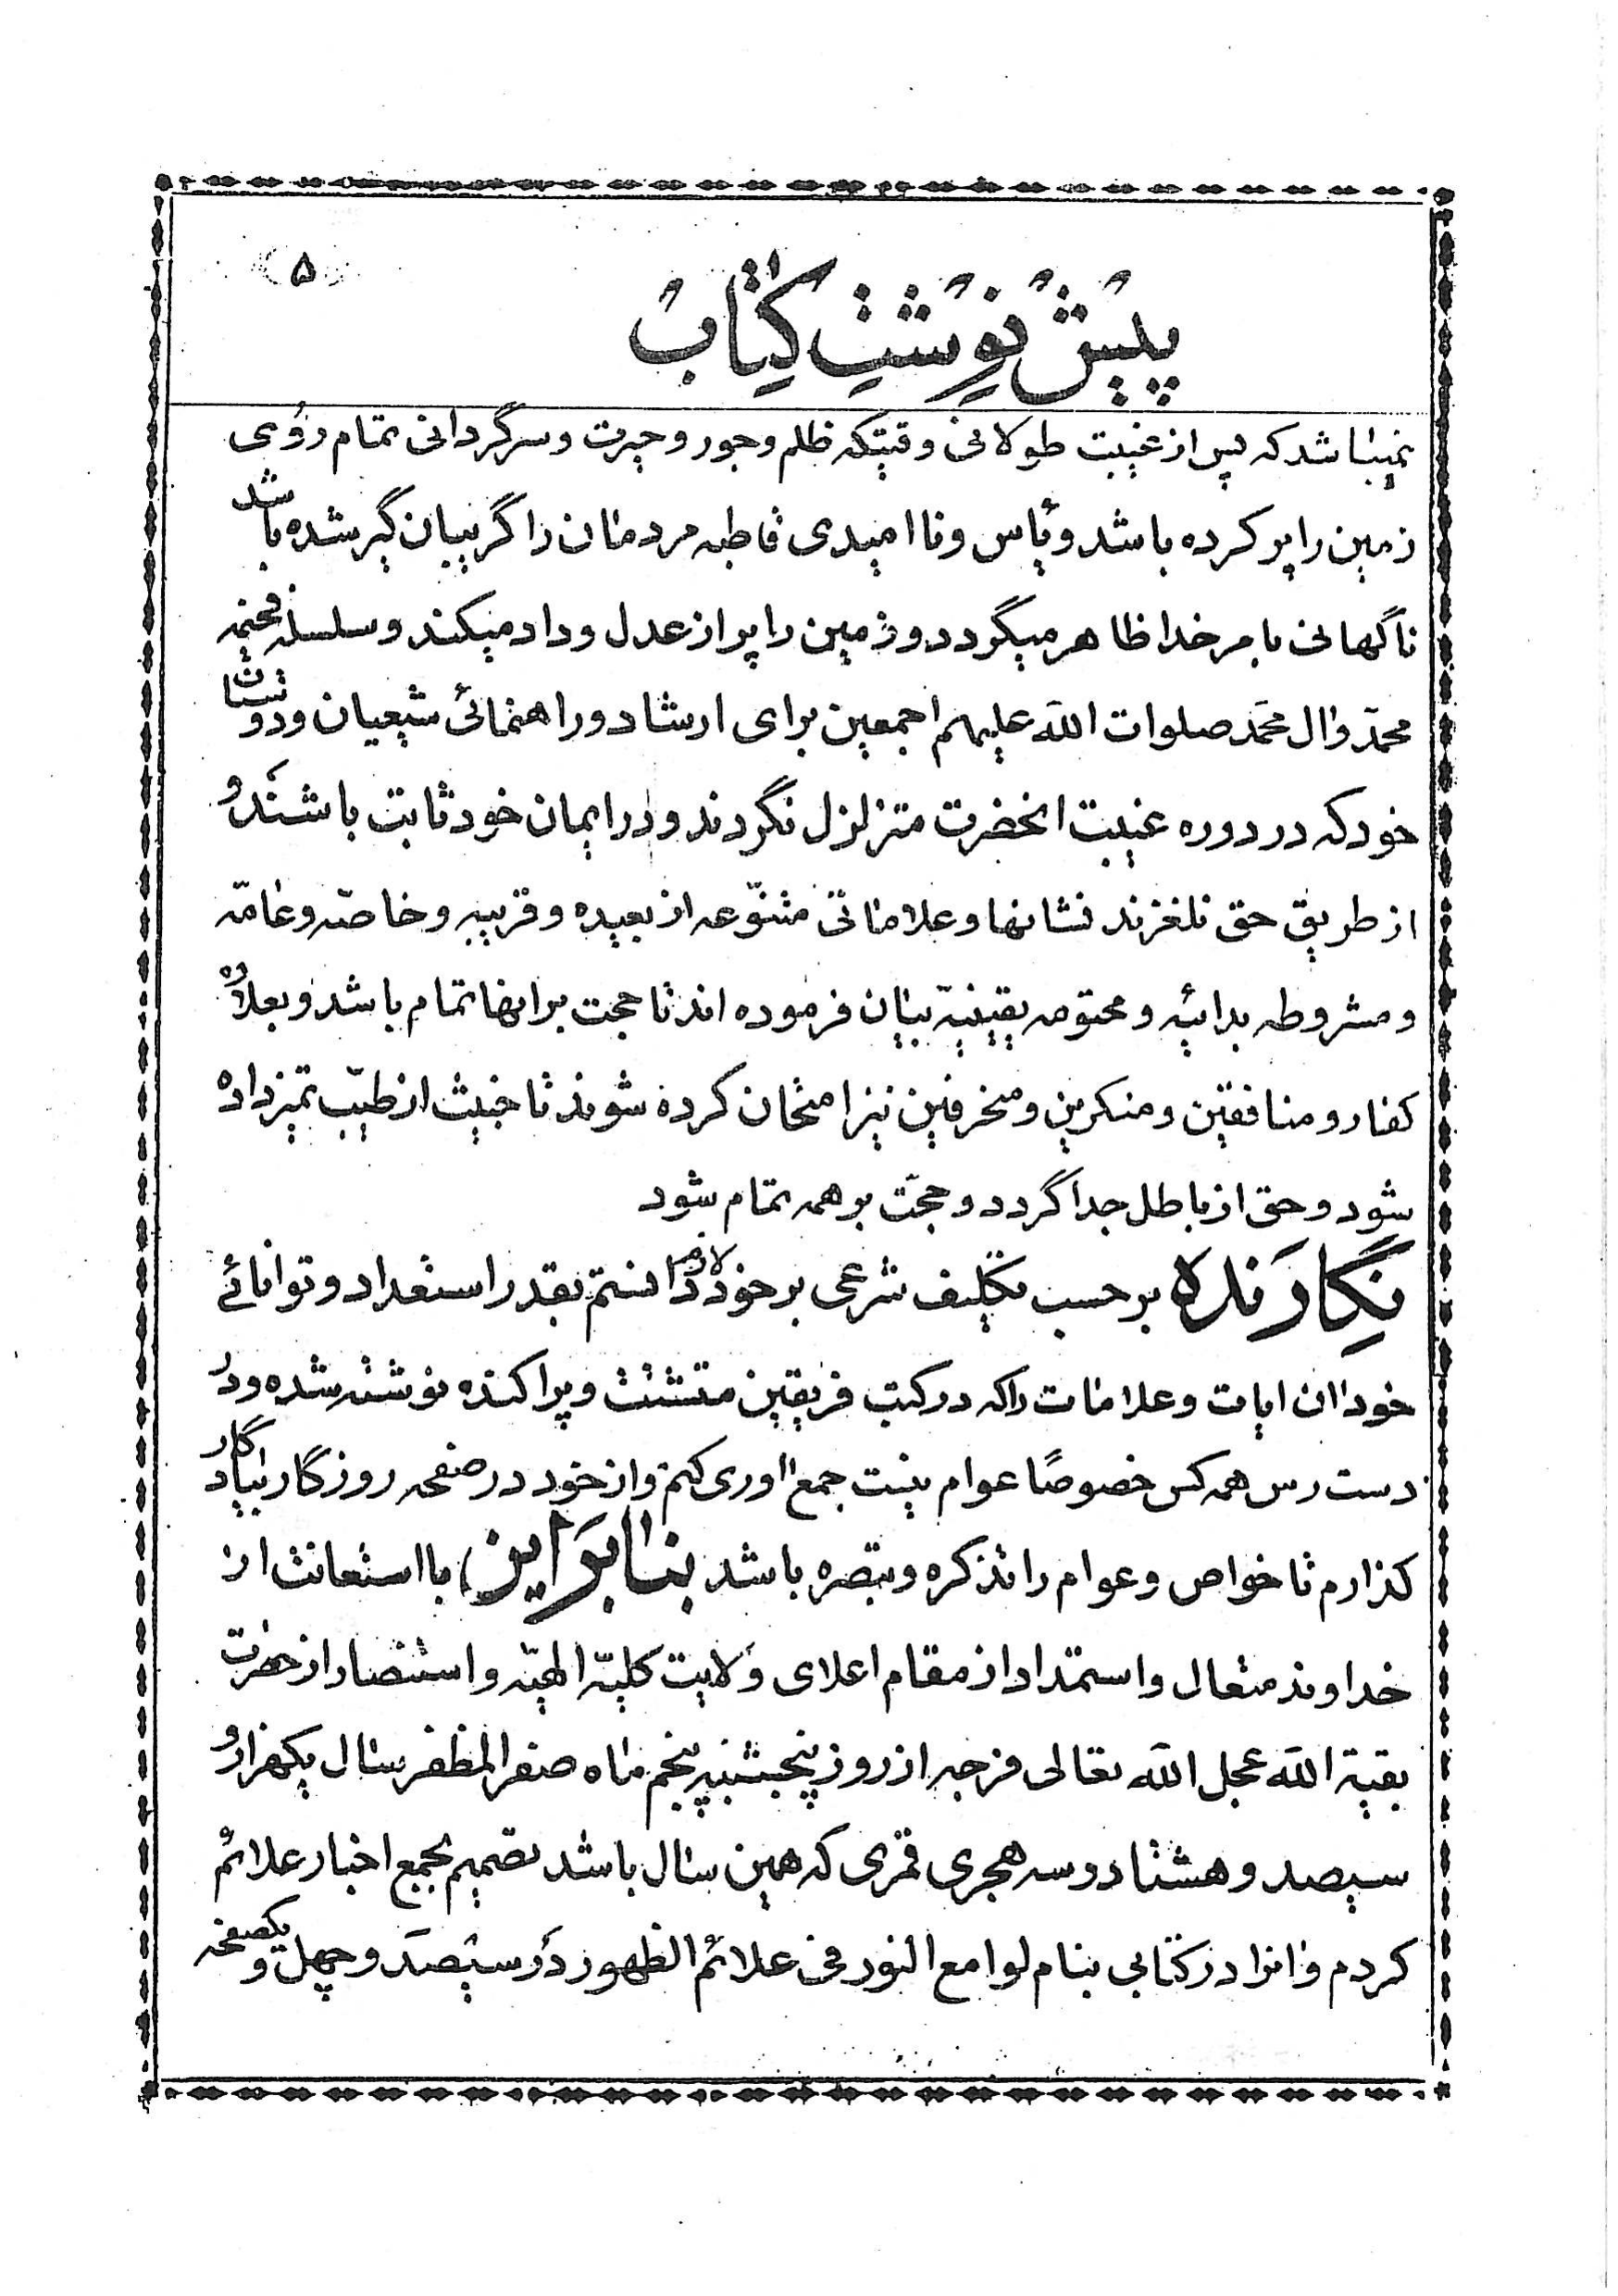 ۵
پیش نوشت کتاب
نمیباشد که پس از غیبت طولانی وقتیکه ظلم وجور وحیرت وسرگردانی تمام روی
زمین را پر کرده باشد ویأس ونا امیدی قاطبه مردمان را گریبان گیر شده باشد
ناگهانی بامر خدا ظاهر میگردد وزمین را پر از عدل وداد میکند وسلسله فخیمه
محمد وال محمد صلوات الله علیهم اجمعین برای ارشاد وراهنمائی شیعیان ودوستان
خود که در دوره غیبت انحضرت متزلزل نگردند ودر ایمان خود ثابت باشند و
از طریق حق نلغزند نشانها وعلاماتی متنوّعه از بعیده وقریبه وخاصه وعامّه
ومشروطه بدائیه ومحتومه یقینیّه بیان فرموده اند تا حجت برانها تمام باشد وبعلاوه
کفار ومنافقین ومنکرین ومنحرفین نیز امتحان کرده شوند تا خبیث از طیّب تمیز داده
شود وحق از باطل جدا گردد وحجّت بر همه تمام شود
نگارنده بر حسب تکلیف شرعی بر خود لازم دانستم بقدر استعداد وتوانائے
خود ان ایات وعلامات را که در کتب فریقین متشتت وپراکنده نوشته شده ودر
دست رس همه کس خصوصًا عوام نیست جمع اوری کنم واز خود در صفحه روزگار بیادگار
گذارم تا خواص وعوام را تذکره وتبصره باشد بنابراین) با استعانت از
خداوند متعال واستمداد از مقام اعلای ولایت کلیّه الهیّه واستنصار از حضرت
بقیة الله عجل الله تعالی فرجه از روز پنجشنبه پنجم ماه صفر المظفر سال یکهزار و
سیصد وهشتاد وسه هجری قمری که همین سال باشد تصمیم بجمع اخبار علائم
کردم وانرا در کتابی بنام لوامع النور فی علائم الظهور در سیصد وچهل ویکصفحه